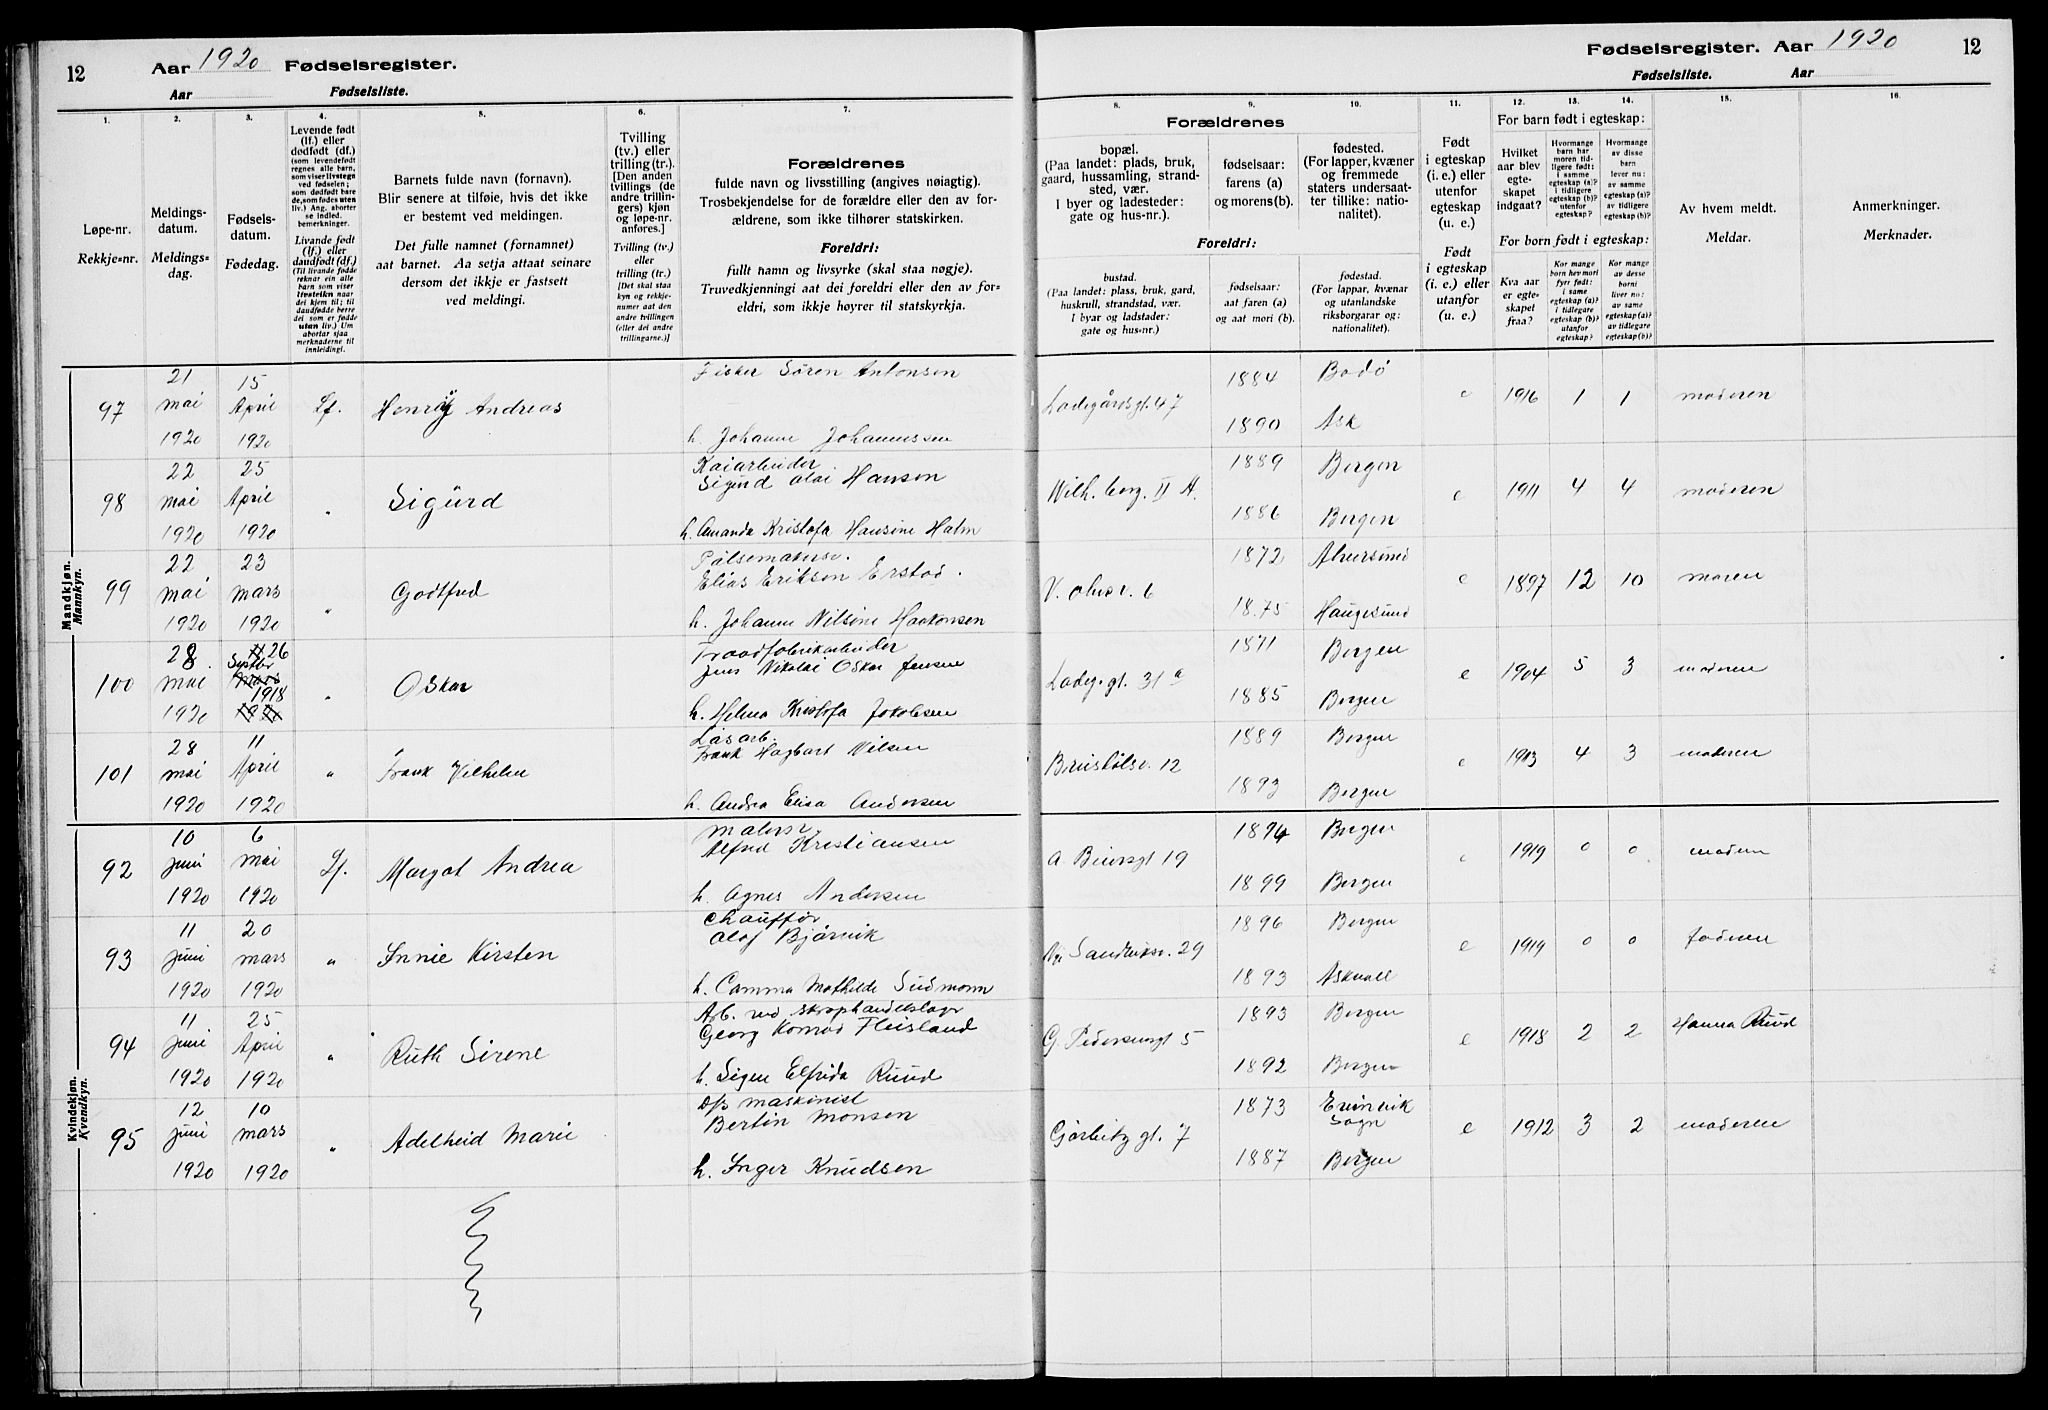 12
Aar 1920 Fødselsregister.
Aar Fødselsliste.
1. 2. 3. 4. 5. 6. 7.
Løpe-nr.
Rekkje-nr.
Meldings-
datum.
Meldings-
dag.
Fødsels-
datum.
Fødedag.
Levende født
(lf.) eller
dødfødt (df.)
(som levendefødt
regnes alle barn,
som viser livstegn
ved fødselen;
som dødfødt bare
de, som fødes uten
liv.) Ang. aborter
se indled.
bemerkninger.
Livande født
(lf.) eller
daudfødt (df.)
(Til livande fødde
reknar ein alle
barn som viser
livsteikn naar
dei kjem til; til
daudfødde berre
dei som er fødde
utan liv.) Um
abortar sjaa
merknaderne til
innleidingi.
Barnets fulde navn (fornavn).
Blir senere at tilføie, hvis det ikke
er bestemt ved meldingen.
Det fulle namnet (fornamnet)
aat barnet. Aa setja attaat seinare
dersom det ikkje er fastsett
ved meldingi.
Tvilling
(tv.) eller
trilling (tr.).
[Den anden
tvillings (de
andre trillin-
gers) kjøn
og løpe-nr.
anføres.]
Tvilling (tv.)
eller
trilling (tr.)
[Det skal staa
kyn og rekkje-
numer aat den
andre tvillingen
(eller dei andre
trillingarne.)]
Forældrenes
fulde navn og livsstilling (angives nøiagtig).
Trosbekjendelse for de forældre eller den av for-
ældrene, som ikke tilhører statskirken.
Foreldri:
fullt namn og livsyrke (skal staa nøgje).
Truvedkjenningi aat dei foreldri eller den av for-
eldri, som ikkje høyrer til statskyrkja.
Mandkjøn.
Mannkyn.
97 21 mai 1920 15 April 1920 Lf. Henry Andreas
Fisker Sören Antonsen
h. Johanne Johannessen
98 22 mai 1920 25 April 1920 " Sigurd
Kaiarbeider
Sigurd Olai Hansen
h. Amanda Kristofa Hansine Halm
99 22 mai 1920 23 mars 1920 " Godtfred
Pølsemaker
Elias Eriksen Erstad.
h. Johanne Nilsine Haakonsen
100 28 mai 1920 11 26 Septbr mars 1918 1920 " Oskar
Traadfabrikarbeider
Jens Nikolai Oskar Jensen
h. Helena Kristofa Jakobsen
101 28 mai 1920 11 April 1920 " Frank Vilhelm
Lösarb.
Frank Hagbart Nilsen
h. Andrea Elisa Andersen
Kvindekjøn.
Kvendkyn.
92 10 juni 1920 6 mai 1920 Lf. Margot Andrea
Malersv.
Alfred Kristiansen
h. Agnes Andersen
93 11 juni 1920 20 mars 1920 " Innie Kirsten
Chauffør
Olaf Bjørnvik
h. Camma Mathilde Sudmann
94 11 juni 1920 25 April 1920 " Ruth Sirene
Arb. ved skraphandelslager
Georg Konrad Fleisland
h. Signe Elfrida Ruud
95 12 juni 1920 10 mars 1920 " Adelheid Marie
D/s maskinist
Bertin Monsen
h. Inger Knudsen
Fødselsregister. Aar 1920 12
Fødselsliste. Aar
8. 9. 10. 11. 12. 13. 14. 15. 16.
Forældrenes
bopæl.
(Paa landet: plads, bruk,
gaard, hussamling, strand-
sted, vær.
I byer og ladesteder:
gate og hus-nr.).
fødselsaar:
farens (a)
og morens (b).
fødested.
(For lapper, kvæner
og fremmede
staters undersaat-
ter tillike: natio-
nalitet).
Foreldri:
bustad.
(Paa landet: plass, bruk, gard,
huskrull, strandstad, vær.
I byar og ladstader:
gate og hus-nr.)
fødselsaar:
aat faren (a)
og aat mori (b).
fødestad.
(For lappar, kvænar
og utanlandske
riksborgarar og:
nationalitet).
Født
i egteskap
(i. e.) eller
utenfor
egteskap
(u. e.)
Født
i egteskap
(i. e.) eller
utanfor
(u. e.)
For barn født i egteskap:
Hvilket
aar blev
egte-
skapet
indgaat?
Hvormange
barn har
moren tid-
ligere født:
i samme
egteskap (a)?
i tidligere
egteskap (b)?
utenfor
egteskap?
Hvormange
av disse
barn
lever nu:
av samme
egteskap (a)?
av tidligere
egteskap (b)?
For born født i egteskap:
Kva aar
er egte-
skapet
fraa?
Kor mange
born hev mori
fyrr født:
i same
egteskap (a)?
i tidlegare
egteskap (b)?
utanfor
egteskap?
Kor mange
av desse
borni
liver no:
av same
egteskap (a)?
av tidlegare
egteskap (b)?
Av hvem meldt.
Meldar.
Anmerkninger.
Merknader.
Ladegårdsgt. 47 1884 Bodö e 1916 1 1 moderen
1890 Ask
Wilh. berg. II A. 1889 Bergen e 1911 4 4 moderen
1886 Bergen
1872 Alversund e 1897 12 10 moren
1875 Haugesund
Ladeg. gt. 31a 1871 Bergen e 1904 5 3 moderen
1885 Bergen
12 1889 Bergen e 1913 4 3 moderen
1893 Bergen
19 1894 Bergen e 1919 0 0 modren
1899 Bergen
Nye Sandviksv. 29 1896 Bergen e 1919 0 0 faderen
1893 Askvoll
G. Pedersensgt 5 1893 Bergen e 1918 2 2 Hanna Ruud
1892 Bergen
Gjørbitz gt. 7 1873 Evinvik
Sogn e 1912 3 2 moderen
1887 Bergen